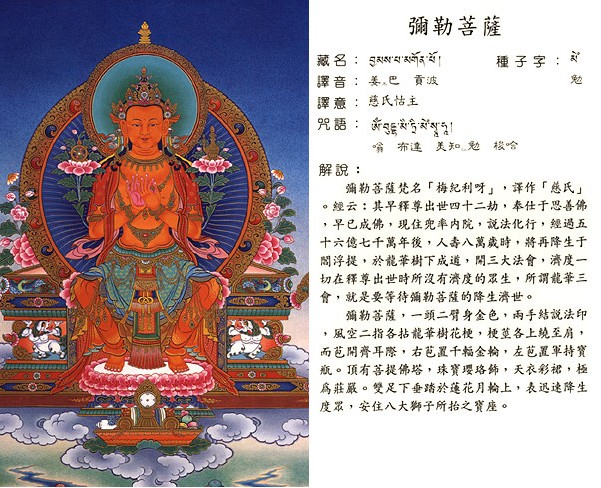 彌勒菩薩
藏名：བྱམས་པ་མགོན་པོ། 種子字：མེ
譯音：姜巴 貢波 勉
譯意：慈氏怙主
咒語：
嗡 布達 美知 勉 梭哈
解說：
彌勒菩薩梵名「梅紀利呀」，譯作「慈氏」
。經云：其早釋尊出世四十二劫，奉仕于思善佛
，早已成佛，現住兜率內院，說法化行，經過五
十六億七千萬年後，人壽八萬歲時，將再降生于
閻浮提，於龍華樹下成道，開三大法會，濟度一
切在釋尊出世時所沒有濟度的眾生，所謂龍華三
會，就是要等待彌勒菩薩的降生濟世。
彌勒菩薩，一頭二臂身金色，兩手結說法印
，風空二指各拈龍華樹花梗，梗莖各上繞至肩，
而芭開齊耳際，右芭置千輻金輪，左芭置軍持寶
瓶。頂有菩提佛塔，珠寶瓔珞飾，天衣彩裙，極
為莊嚴。雙足下垂踏於蓮花月輪上，表迅速降生
度眾，安住八大獅子所抬之寶座。